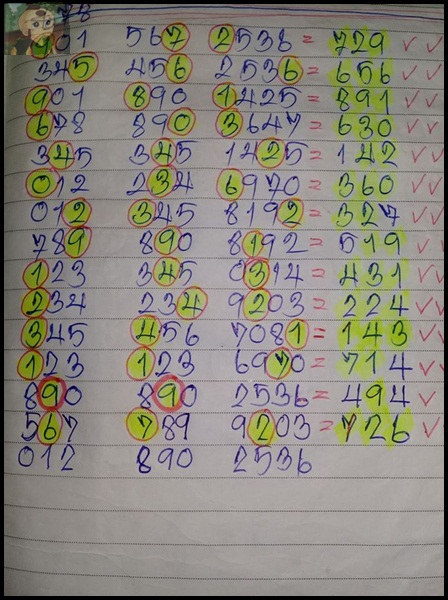 78
901 567 2538 = 729 ✓ ✓
345 456 2536 = 656 ✓ ✓
901 890 1425 = 891 ✓ ✓
678 890 3647 = 630 ✓ ✓
345 345 1425 = 142 ✓ ✓
012 234 6970 = 360 ✓ ✓
012 345 8192 = 327 ✓ ✓
789 890 8192 = 519 ✓
123 345 0314 = 431 ✓ ✓
234 234 9203 = 224 ✓ ✓
345 456 7081 = 143 ✓ ✓
123 123 6970 = 714 ✓ ✓
890 890 2536 = 494 ✓
567 789 9203 = 726 ✓ ✓
012 890 2536